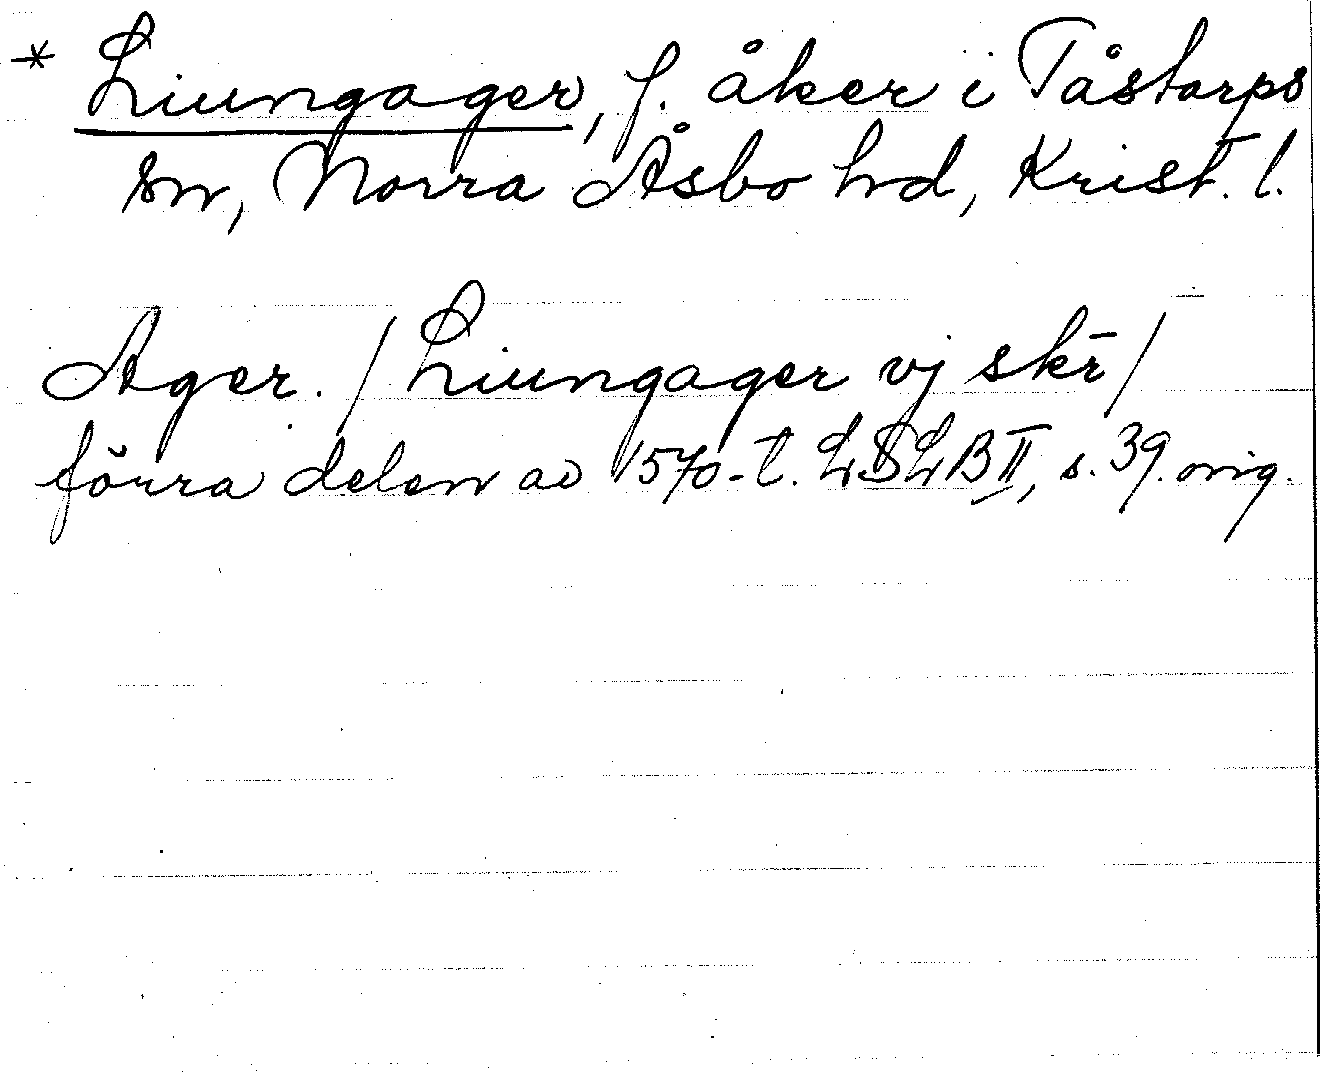 * Liungager, f. åker i Tåstarps
sn, Norra Åsbo hd, Krist. l.
Ager. / Liungager vj skr̄ /
förra delen av 1570-t. LSLB II, s. 39. orig.